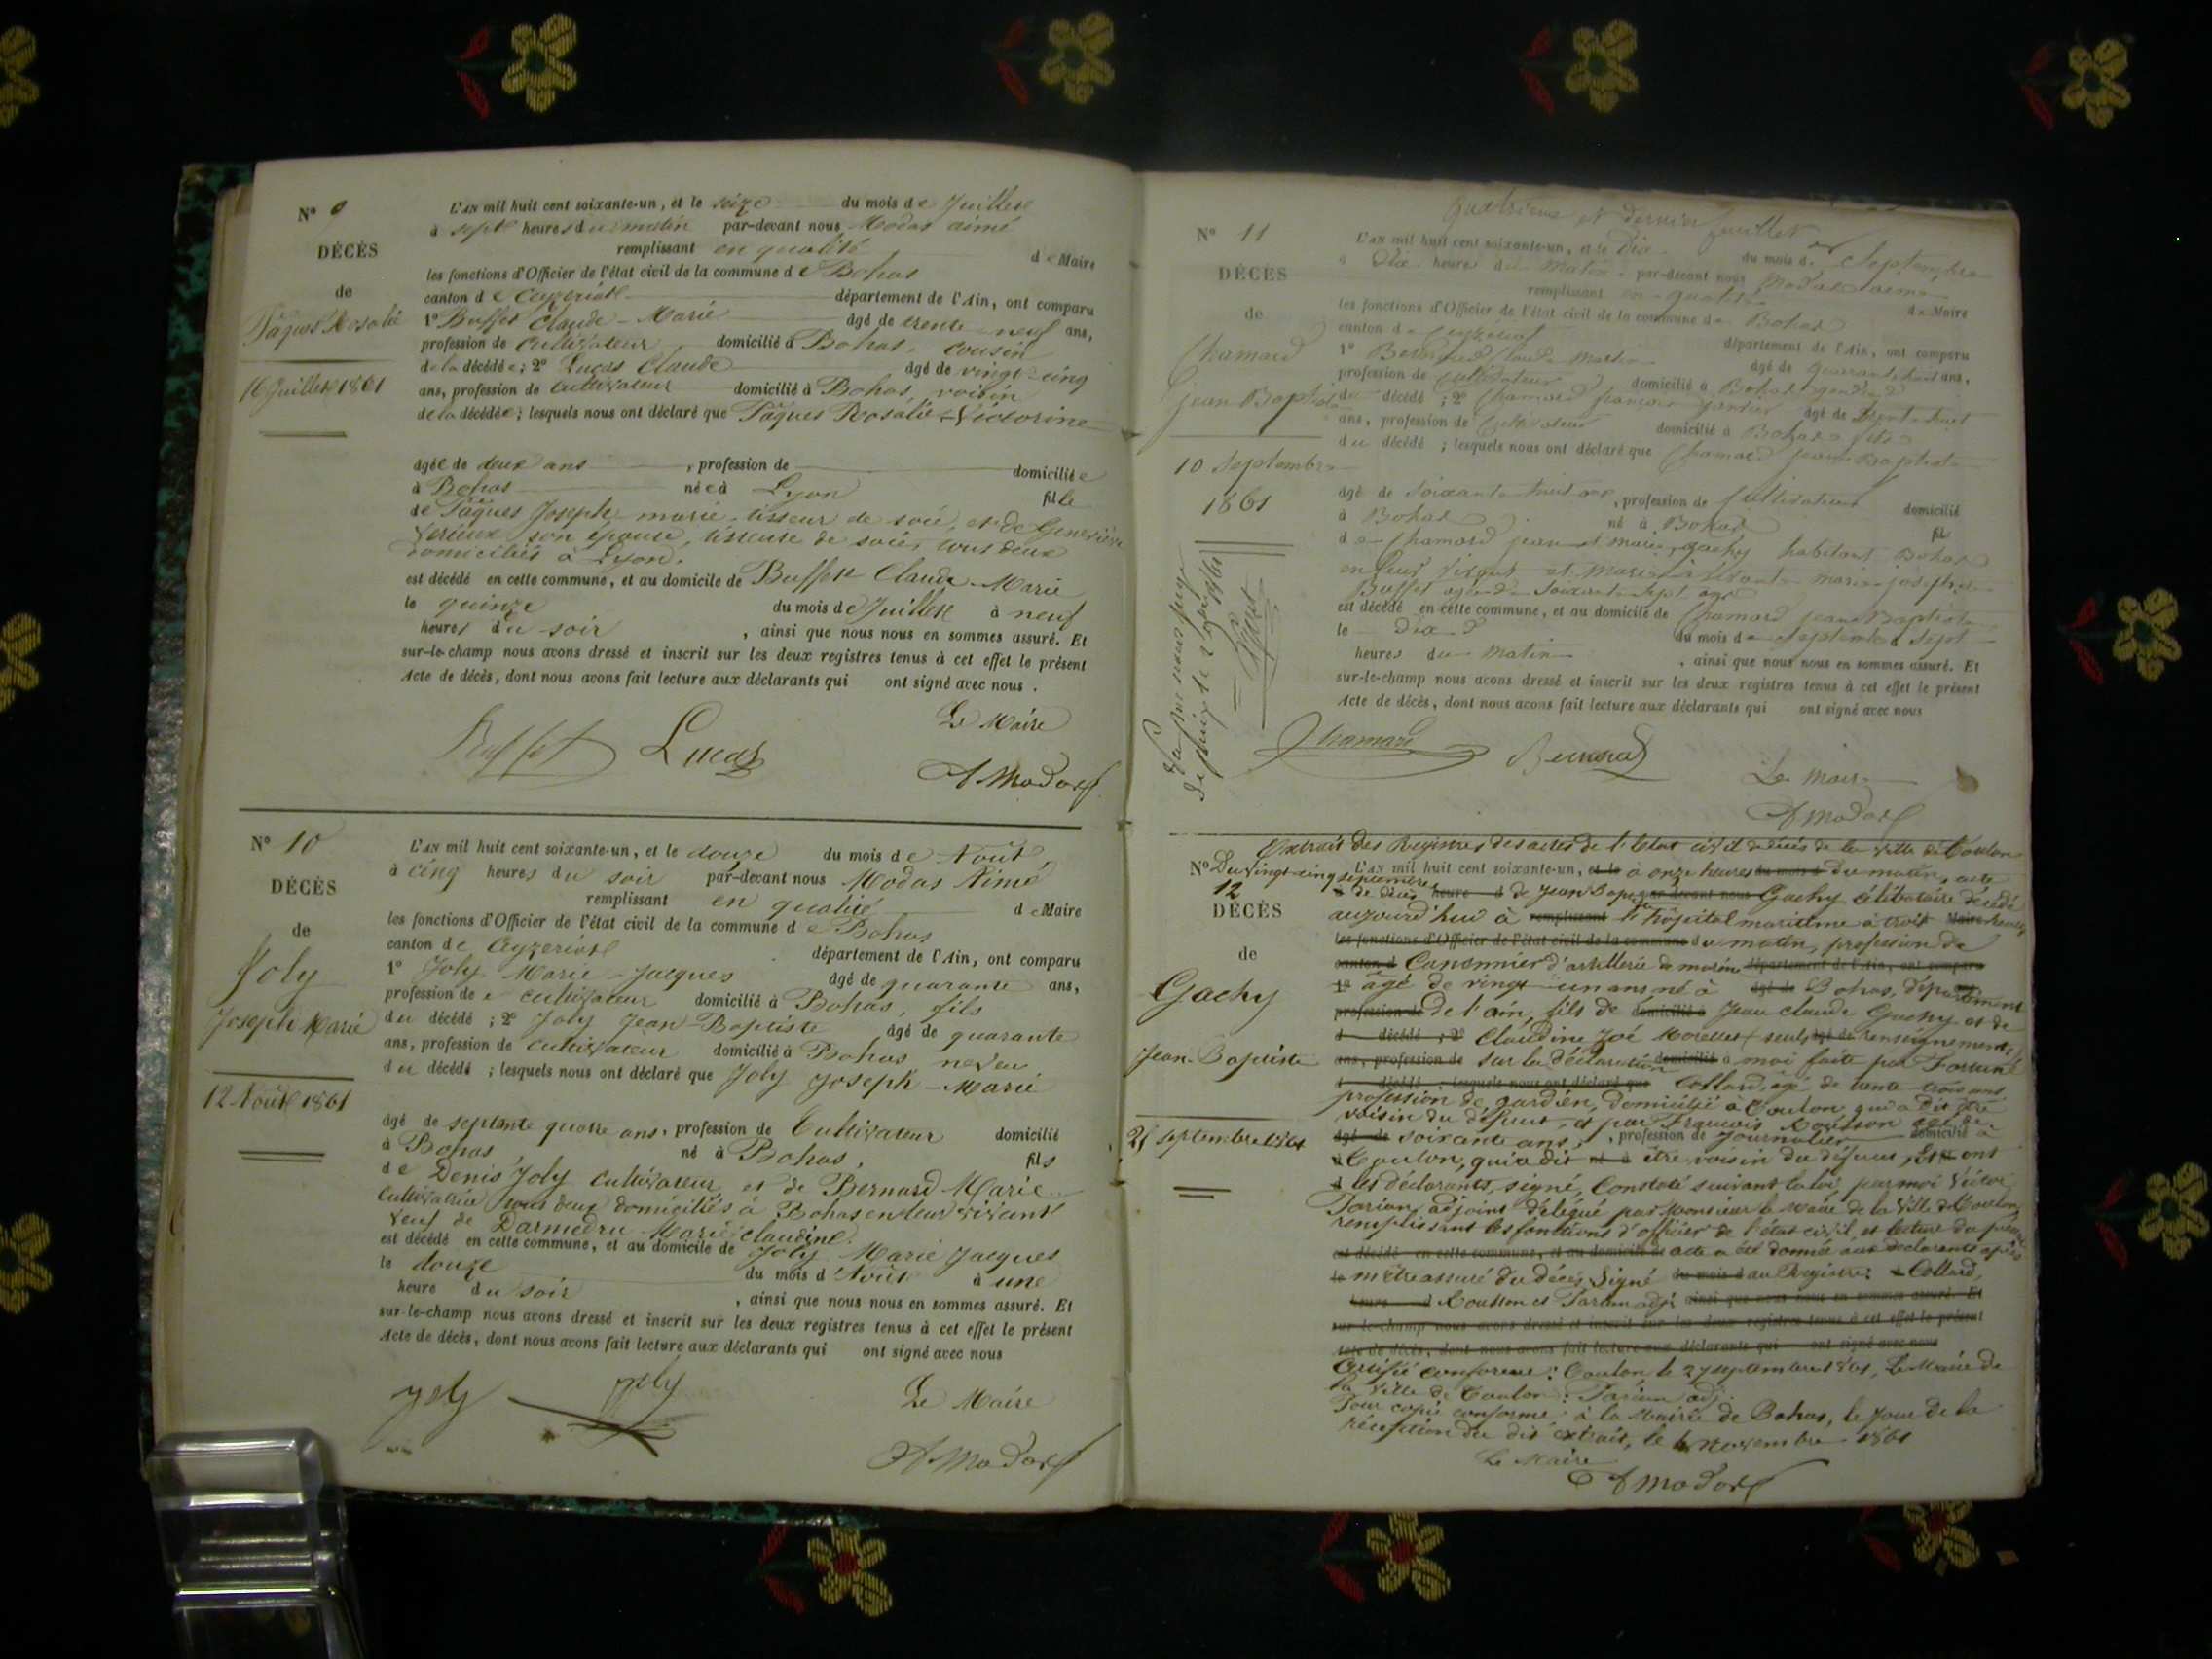 N° 9
DÉCÈS
de
Pâques Rosalie
16 Juillet 1861
L'AN mil huit cent soixante-un, et le seize du mois de Juillet
à sept heures du matin par-devant nous Modas aimé
remplissant en qualité de Maire
les fonctions d'Officier de l'état civil de la commune de Bohas
canton de Ceyzeriat département de l'Ain, ont comparu
1° Buffet Claude-Marie âgé de trente-neuf ans,
profession de Cultivateur domicilié à Bohas, cousin
de la décédée ; 2° Lucas Claude âgé de vingt-cinq
ans, profession de Cultivateur domicilié à Bohas, voisin
de la décédée ; lesquels nous ont déclaré que Pâques Rosalie-Victorine
âgée de deux ans, profession de domiciliée
à Bohas née à Lyon fille
de Pâques Joseph-marie, tisseur de soie, et de Geneviève
son épouse, tisseuse de soie, tous deux
domiciliés à Lyon.
est décédé en cette commune, et au domicile de Buffet Claude-Marie
le quinze du mois de Juillet à neuf
heures du soir, ainsi que nous nous en sommes assuré. Et
sur-le-champ nous avons dressé et inscrit sur les deux registres tenus à cet effet le présent
Acte de décès, dont nous avons fait lecture aux déclarants qui ont signé avec nous.
Le Maire
Buffet Lucas
A Modas
N° 10
DÉCÈS
de
Joly
Joseph Marie
12 Août 1861
L'AN mil huit cent soixante-un, et le douze du mois de Août,
à cinq heures du soir par-devant nous Modas Aimé
remplissant en qualité de Maire
les fonctions d'Officier de l'état civil de la commune de Bohas
canton de Ceyzeriat département de l'Ain, ont comparu
1° Joly Marie-Jacques âgé de quarante ans,
profession de cultivateur domicilié à Bohas, fils
du décédé ; 2° Joly Jean-Baptiste âgé de quarante
ans, profession de cultivateur domicilié à Bohas neveu
du décédé ; lesquels nous ont déclaré que Joly Joseph-Marie
âgé de septante quatre ans, profession de Cultivateur domicilié
à Bohas né à Bohas, fils
de Denis Joly cultivateur et de Bernard Marie
Cultivatrice tous deux domiciliés à Bohas en leur vivant
veuf de Darmedru Marie claudine.
est décédé en cette commune, et au domicile de Joly Marie Jacques
le douze du mois d'Août à une
heure du soir, ainsi que nous nous en sommes assuré. Et
sur-le-champ nous avons dressé et inscrit sur les deux registres tenus à cet effet le présent
Acte de décès, dont nous avons fait lecture aux déclarants qui ont signé avec nous
joly joly
Le Maire
A Modas
quatrième et dernier feuillet
N° 11
DÉCÈS
de
Chamard
jean Baptiste
10 Septembre
1861
L'AN mil huit cent soixante-un, et le Dix du mois de Septembre
à Dix heures du Matin par-devant nous Modas aimé
remplissant en qualité de Maire
les fonctions d'Officier de l'état civil de la commune de Bohas
canton de Ceyzeriat département de l'Ain, ont comparu
1° Bernard Claude Martin âgé de quarante huit ans,
profession de Cultivateur domicilié à Bohas gendre
du décédé ; 2° Chamard françois âgé de trente huit
ans, profession de Cultivateur domicilié à Bohas fils
du décédé ; lesquels nous ont déclaré que Chamard jean Baptiste
âgé de soixante huit ans, profession de Cultivateur domicilié
à Bohas né à Bohas fils
de Chamard jean et marie gachy habitant Bohas
en leur vivant et Marie josephe
Buffet âgée de soixante sept ans
est décédé en cette commune, et au domicile de Chamard jean Baptiste
le Dix du mois de Septembre à Sept
heures du Matin, ainsi que nous nous en sommes assuré. Et
sur-le-champ nous avons dressé et inscrit sur les deux registres tenus à cet effet le présent
Acte de décès, dont nous avons fait lecture aux déclarants qui ont signé avec nous
Chamard Bernard
Le Maire
A Modas
Extrait des Registres des actes de l'Etat civil de décès de la Ville de Toulon
N° 12
DÉCÈS
de
Gachy
Jean-Baptiste
25 septembre 1861
Du Vingt-cinq septembre L'AN mil huit cent soixante-un, et le à onze heures du mois d du matin, acte
de décès heure d de Jean Baptiste par-devant nous Gachy célibataire décédé
aujourd'hui à remplissant l'hôpital maritime à trois Maire heures
les fonctions d'Officier de l'état civil de la commune du matin, profession de
canton d Canonnier d'artillerie de marine département de l'Ain, ont comparu
1° âgé de vingt-un ans né à âgé de Bohas, département
profession de de l'ain, fils de domicilié à Jean claude Gachy et de
d décédé ; 2° Claudine Zoé Morellet (seuls âgé de renseignements)
ans, profession de sur la déclaration domicilié à à moi faite par Fortuné
d décédé ; lesquels nous ont déclaré que Collard, âgé de trente trois ans
profession de gardien, domicilié à Toulon, qui a dit être
voisin du défunt, et par François Rousson âgé de
âgé de soixante ans, profession de Journalier domicilié à
à Toulon, qui a dit né à être voisin du défunt, Et fil ont
d les déclarants, signé, Constaté suivant la loi, par moi Victor
adjoint délégué par Monsieur le Maire de la Ville de Toulon,
remplissant les fonctions d'officier de l'état civil, et lecture du présent
est décédé en cette commune, et au domicile de acte a été donnée aux déclarants après
le m'être assuré du décès, Signé du mois d au Registre : Collard,
heure d Rousson et adj. ainsi que nous nous en sommes assuré. Et
sur-le-champ nous avons dressé et inscrit sur les deux registres tenus à cet effet le présent
Acte de décès, dont nous avons fait lecture aux déclarants qui ont signé avec nous
Certifié conforme : Toulon le 27 septembre 1861, Le Maire de
la Ville de Toulon : adj.
Pour copie conforme, à la Mairie de Bohas, le jour de la
réception du dit extrait, le Novembre 1861
Le Maire
A Modas